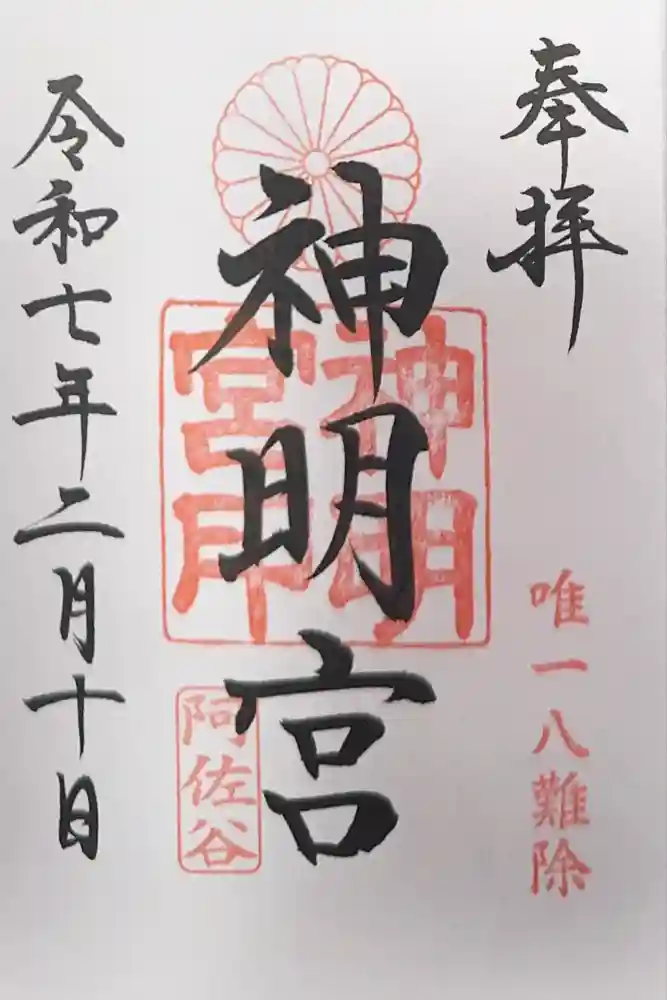 奉拝
唯一八難除
神明宮
神明宮印
阿佐谷
令和七年二月十日